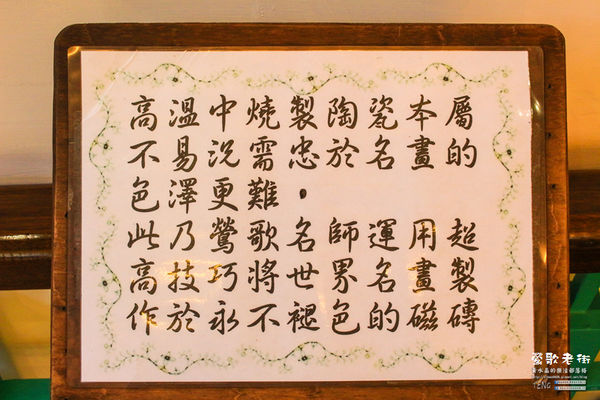 高溫中燒製陶瓷本屬
不易況需忠於名畫的
色澤更難。
此乃鶯歌名師運用超
高技巧將世界名畫製
作於永不褪色的磁磚
鶯歌老街
水晶的樂活部落格
TENG